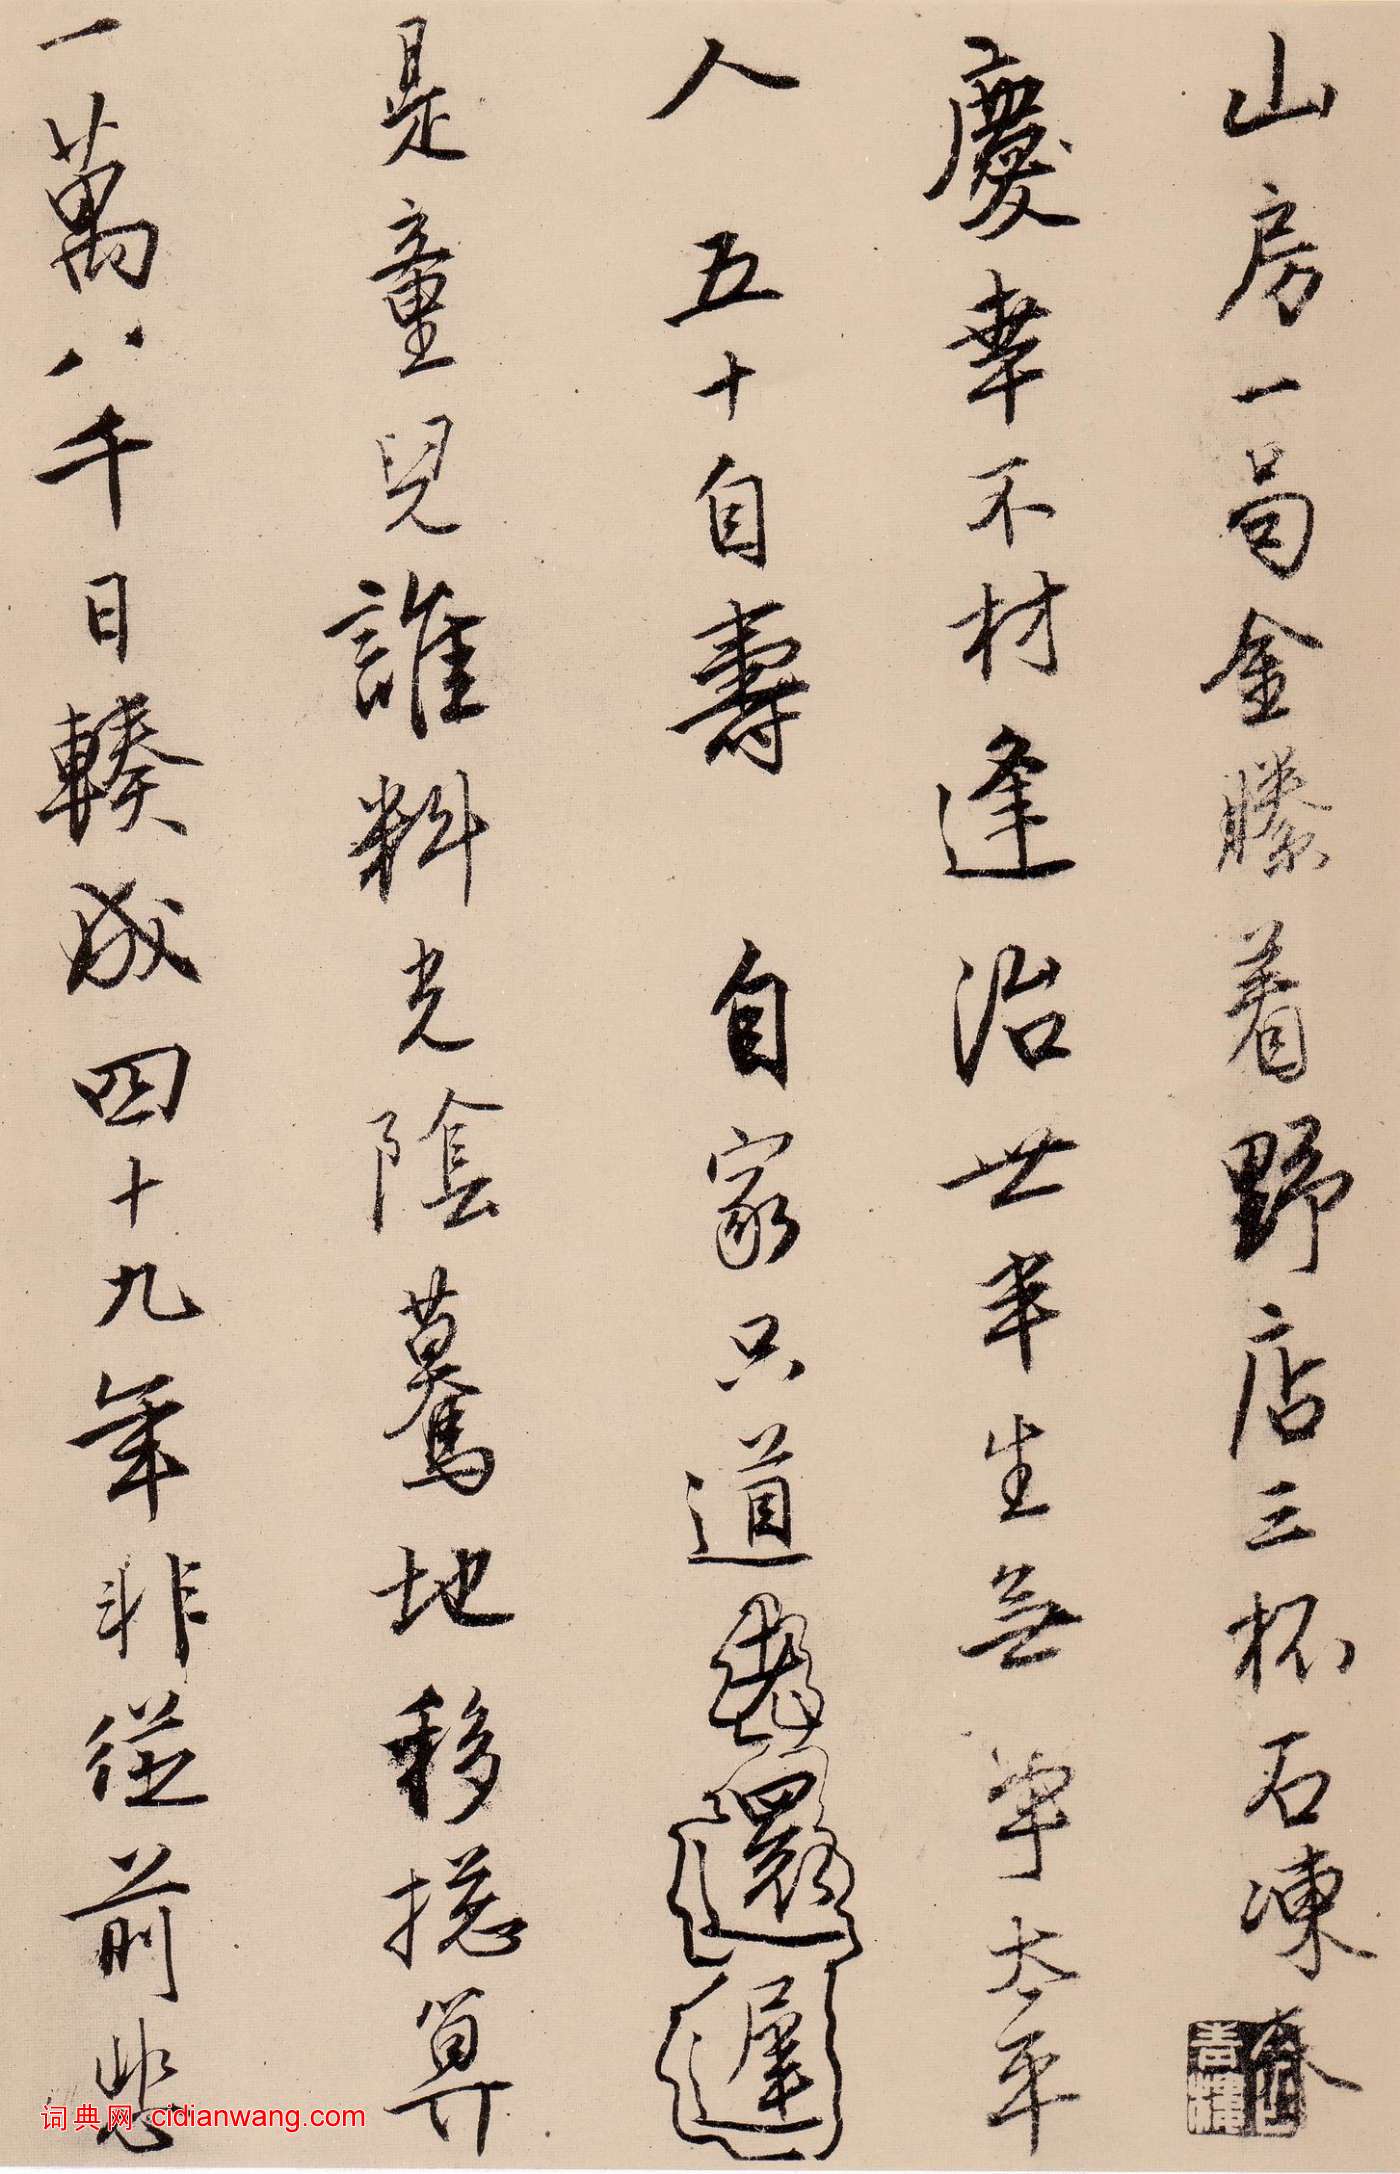 山房一局金縢着野店三杯石凍春
慶幸不材逢治世半生無事太平
人 五十自壽 自家只道老還遲
是童兒誰料光陰驀地移揔算
一萬八千日輳成四十九年非從前悲
词典网:cidianwang.com